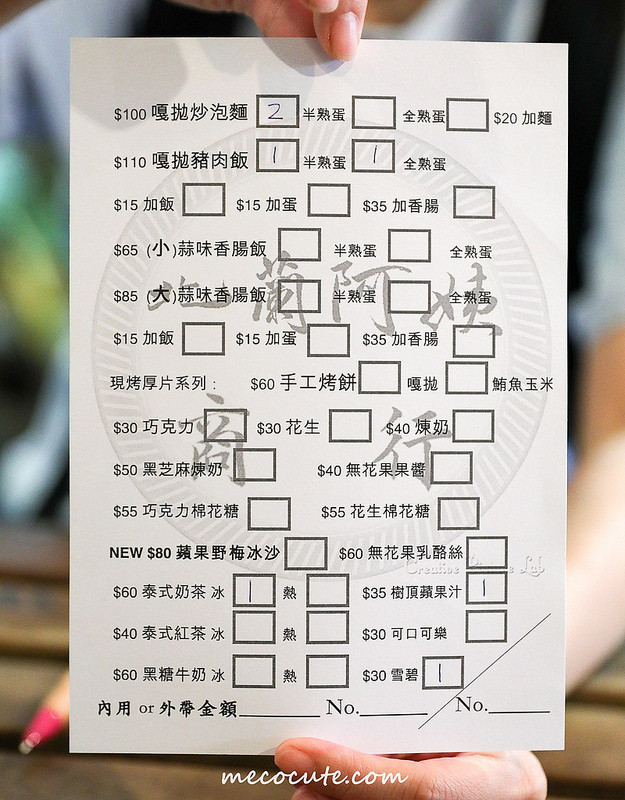 $100 嘎拋炒泡麵 2 半熟蛋 全熟蛋 $20 加麵
$110 嘎拋豬肉飯 1 半熟蛋 1 全熟蛋
$15 加飯 $15 加蛋 $35 加香腸
$65 (小)蒜味香腸飯 半熟蛋 全熟蛋
$85 (大)蒜味香腸飯 半熟蛋 全熟蛋
蘭阿姨
$15 加飯 $15 加蛋 $35 加香腸
現烤厚片系列: $60 手工烤餅 嘎拋 鮪魚玉米
$30 巧克力 $30 花生 $40 煉奶
商行
$50 黑芝麻煉奶 $40 無花果果醬
$55 巧克力棉花糖 $55 花生棉花糖
NEW $80 蘋果野梅冰沙 $60 無花果乳酪絲
$60 泰式奶茶 冰 1 熱 $35 樹頂蘋果汁 1
$40 泰式紅茶 冰 熱 $30 可口可樂
$60 黑糖牛奶 冰 熱 $30 雪碧 1
內用 or 外帶金額 No. No.
mecocute.com